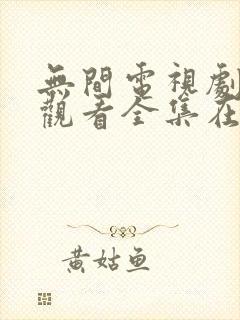 無間電視劇
觀看全集在
黃姑魚